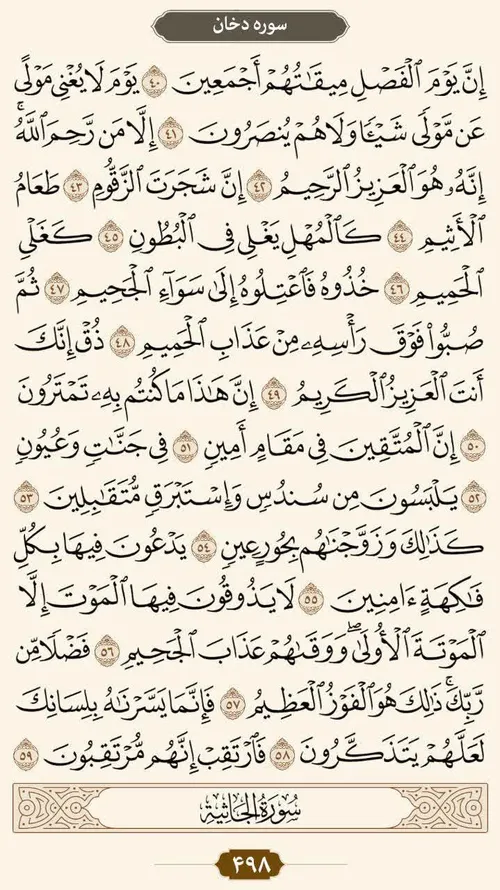 سوره دخان
إِنَّ يَوْمَ ٱلْفَصْلِ مِيقَٰتُهُمْ أَجْمَعِينَ ٤٠ يَوْمَ لَا يُغْنِي مَوْلًى
عَن مَّوْلًى شَيْـًٔا وَلَا هُمْ يُنصَرُونَ ٤١ إِلَّا مَن رَّحِمَ ٱللَّهُۚ
إِنَّهُۥ هُوَ ٱلْعَزِيزُ ٱلرَّحِيمُ ٤٢ إِنَّ شَجَرَتَ ٱلزَّقُّومِ ٤٣ طَعَامُ
ٱلْأَثِيمِ ٤٤ كَٱلْمُهْلِ يَغْلِي فِي ٱلْبُطُونِ ٤٥ كَغَلْيِ
ٱلْحَمِيمِ ٤٦ خُذُوهُ فَٱعْتِلُوهُ إِلَىٰ سَوَآءِ ٱلْجَحِيمِ ٤٧ ثُمَّ
صُبُّوا۟ فَوْقَ رَأْسِهِۦ مِنْ عَذَابِ ٱلْحَمِيمِ ٤٨ ذُقْ إِنَّكَ
أَنتَ ٱلْعَزِيزُ ٱلْكَرِيمُ ٤٩ إِنَّ هَٰذَا مَا كُنتُم بِهِۦ تَمْتَرُونَ
٥٠ إِنَّ ٱلْمُتَّقِينَ فِي مَقَامٍ أَمِينٍ ٥١ فِي جَنَّٰتٍ وَعُيُونٍ
٥٢ يَلْبَسُونَ مِن سُندُسٍ وَإِسْتَبْرَقٍ مُّتَقَٰبِلِينَ ٥٣
كَذَٰلِكَ وَزَوَّجْنَٰهُم بِحُورٍ عِينٍ ٥٤ يَدْعُونَ فِيهَا بِكُلِّ
فَٰكِهَةٍ ءَامِنِينَ ٥٥ لَا يَذُوقُونَ فِيهَا ٱلْمَوْتَ إِلَّا
ٱلْمَوْتَةَ ٱلْأُولَىٰۖ وَوَقَىٰهُمْ عَذَابَ ٱلْجَحِيمِ ٥٦ فَضْلًا مِّن
رَّبِّكَۚ ذَٰلِكَ هُوَ ٱلْفَوْزُ ٱلْعَظِيمُ ٥٧ فَإِنَّمَا يَسَّرْنَٰهُ بِلِسَانِكَ
لَعَلَّهُمْ يَتَذَكَّرُونَ ٥٨ فَٱرْتَقِبْ إِنَّهُم مُّرْتَقِبُونَ ٥٩
سُورَةُ الْجَاثِيَةِ
۴۹۸